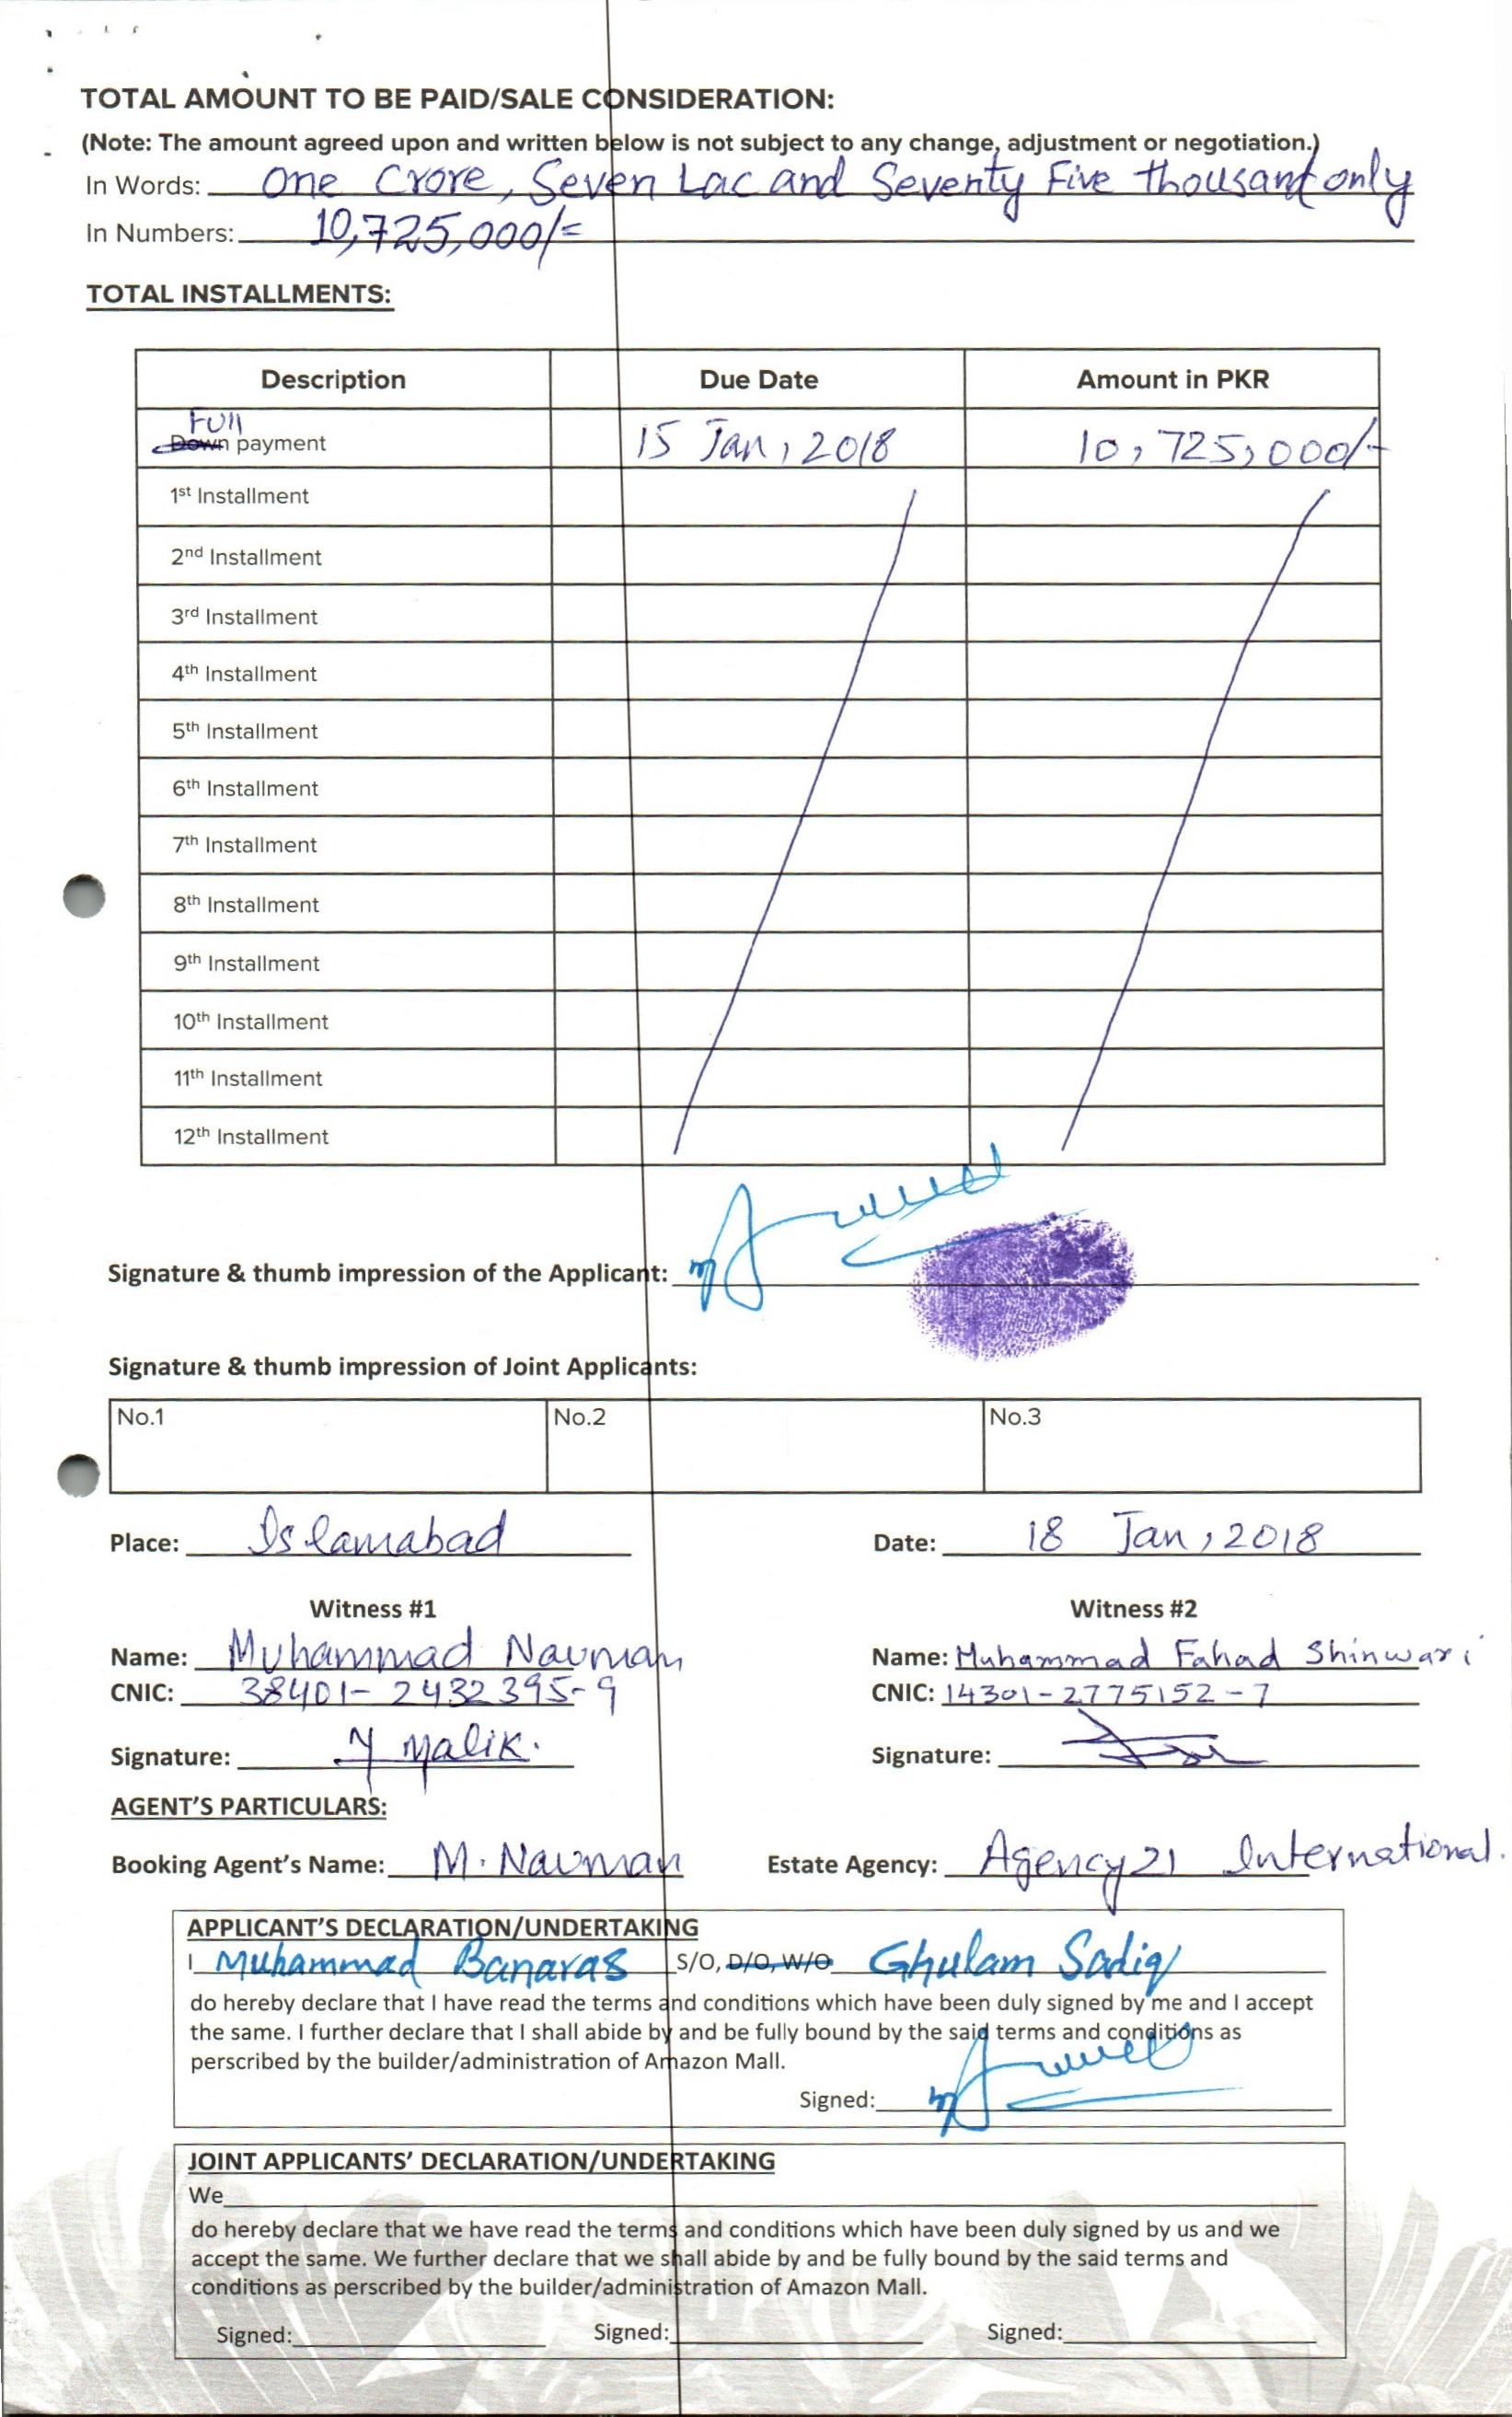 TOTAL AMOUNT TO BE PAID/SALE CONSIDERATION:
(Note: The amount agreed upon and written below is not subject to any change, adjustment or negotiation.)
In Words: One Crore, Seven Lac and Seventy Five thousand only
In Numbers: 10,725,000/=
TOTAL INSTALLMENTS:
Description Due Date Amount in PKR
Full
Down payment 15 Jan, 2018 10,725,000/-
1st Installment
2nd Installment
3rd Installment
4th Installment
5th Installment
6th Installment
7th Installment
8th Installment
9th Installment
10th Installment
11th Installment
12th Installment
Signature & thumb impression of the Applicant:
Signature & thumb impression of Joint Applicants:
No.1 No.2 No.3
Place: Islamabad Date: 18 Jan, 2018
Witness #1 Witness #2
Name: Muhammad Nauman Name: Muhammad Fahad Shinwari
CNIC: 38401-2432395-9 CNIC: 14301-2775152-7
Signature: Malik. Signature:
AGENT'S PARTICULARS:
Booking Agent's Name: M. Nauman Estate Agency: Agency21 International.
APPLICANT'S DECLARATION/UNDERTAKING
I Muhammad Banaras S/O, D/O, W/O Ghulam Sadiq
do hereby declare that I have read the terms and conditions which have been duly signed by me and I accept
the same. I further declare that I shall abide by and be fully bound by the said terms and conditions as
perscribed by the builder/administration of Amazon Mall.
Signed:
JOINT APPLICANTS' DECLARATION/UNDERTAKING
We
do hereby declare that we have read the terms and conditions which have been duly signed by us and we
accept the same. We further declare that we shall abide by and be fully bound by the said terms and
conditions as perscribed by the builder/administration of Amazon Mall.
Signed: Signed: Signed: